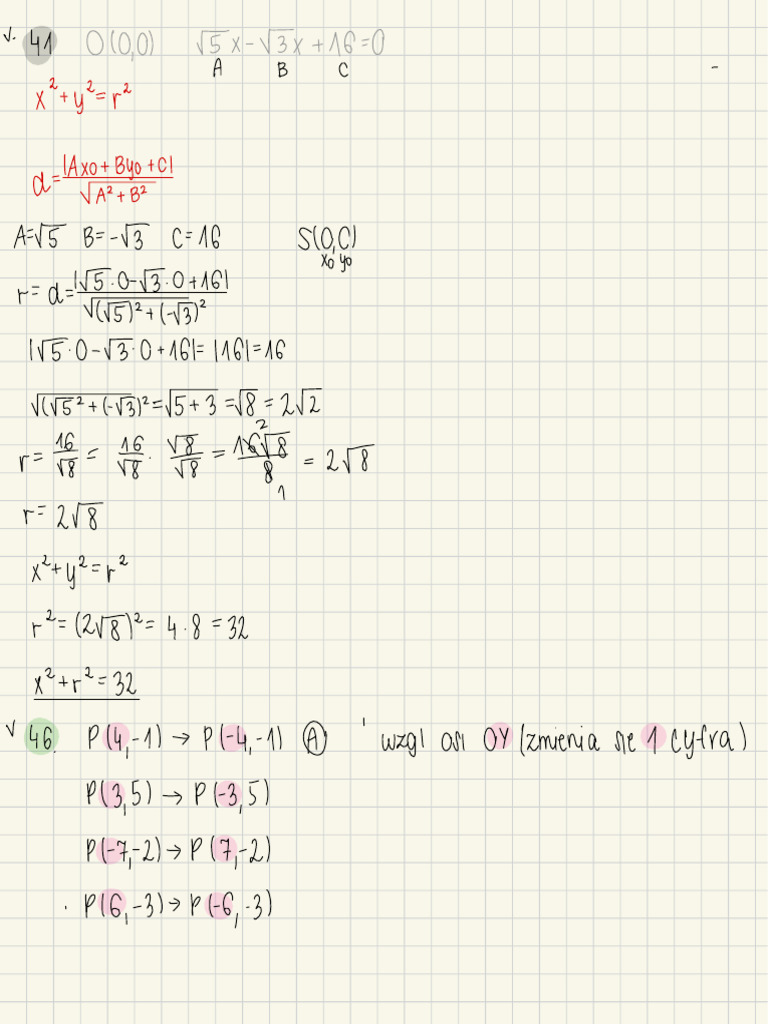 v. 41 O(0,0) √5x-√3x+16=0
A B C
x²+y²=r²
d=|Ax0+By0+C|/√A²+B²
A=√5 B=-√3 C=16 S(0,0)
x0 y0
r=d=|√5·0-√3·0+16|/√(√5)²+(-√3)²
|√5·0-√3·0+16|=|16|=16
√(√5²+(-√3)²=√5+3=√8=2√2
r=16/√8=16/√8·√8/√8=16√8/8=2√8
2
1
r=2√8
x²+y²=r²
r²=(2√8)²=4·8=32
x²+r²=32
v 46. P(4,-1)→P(-4,-1) A ' wzgl osi OY (zmienia się 1 cyfra)
P(3,5)→P(-3,5)
P(-7,-2)→P(7,-2)
· P(6,-3)→P(-6,-3)